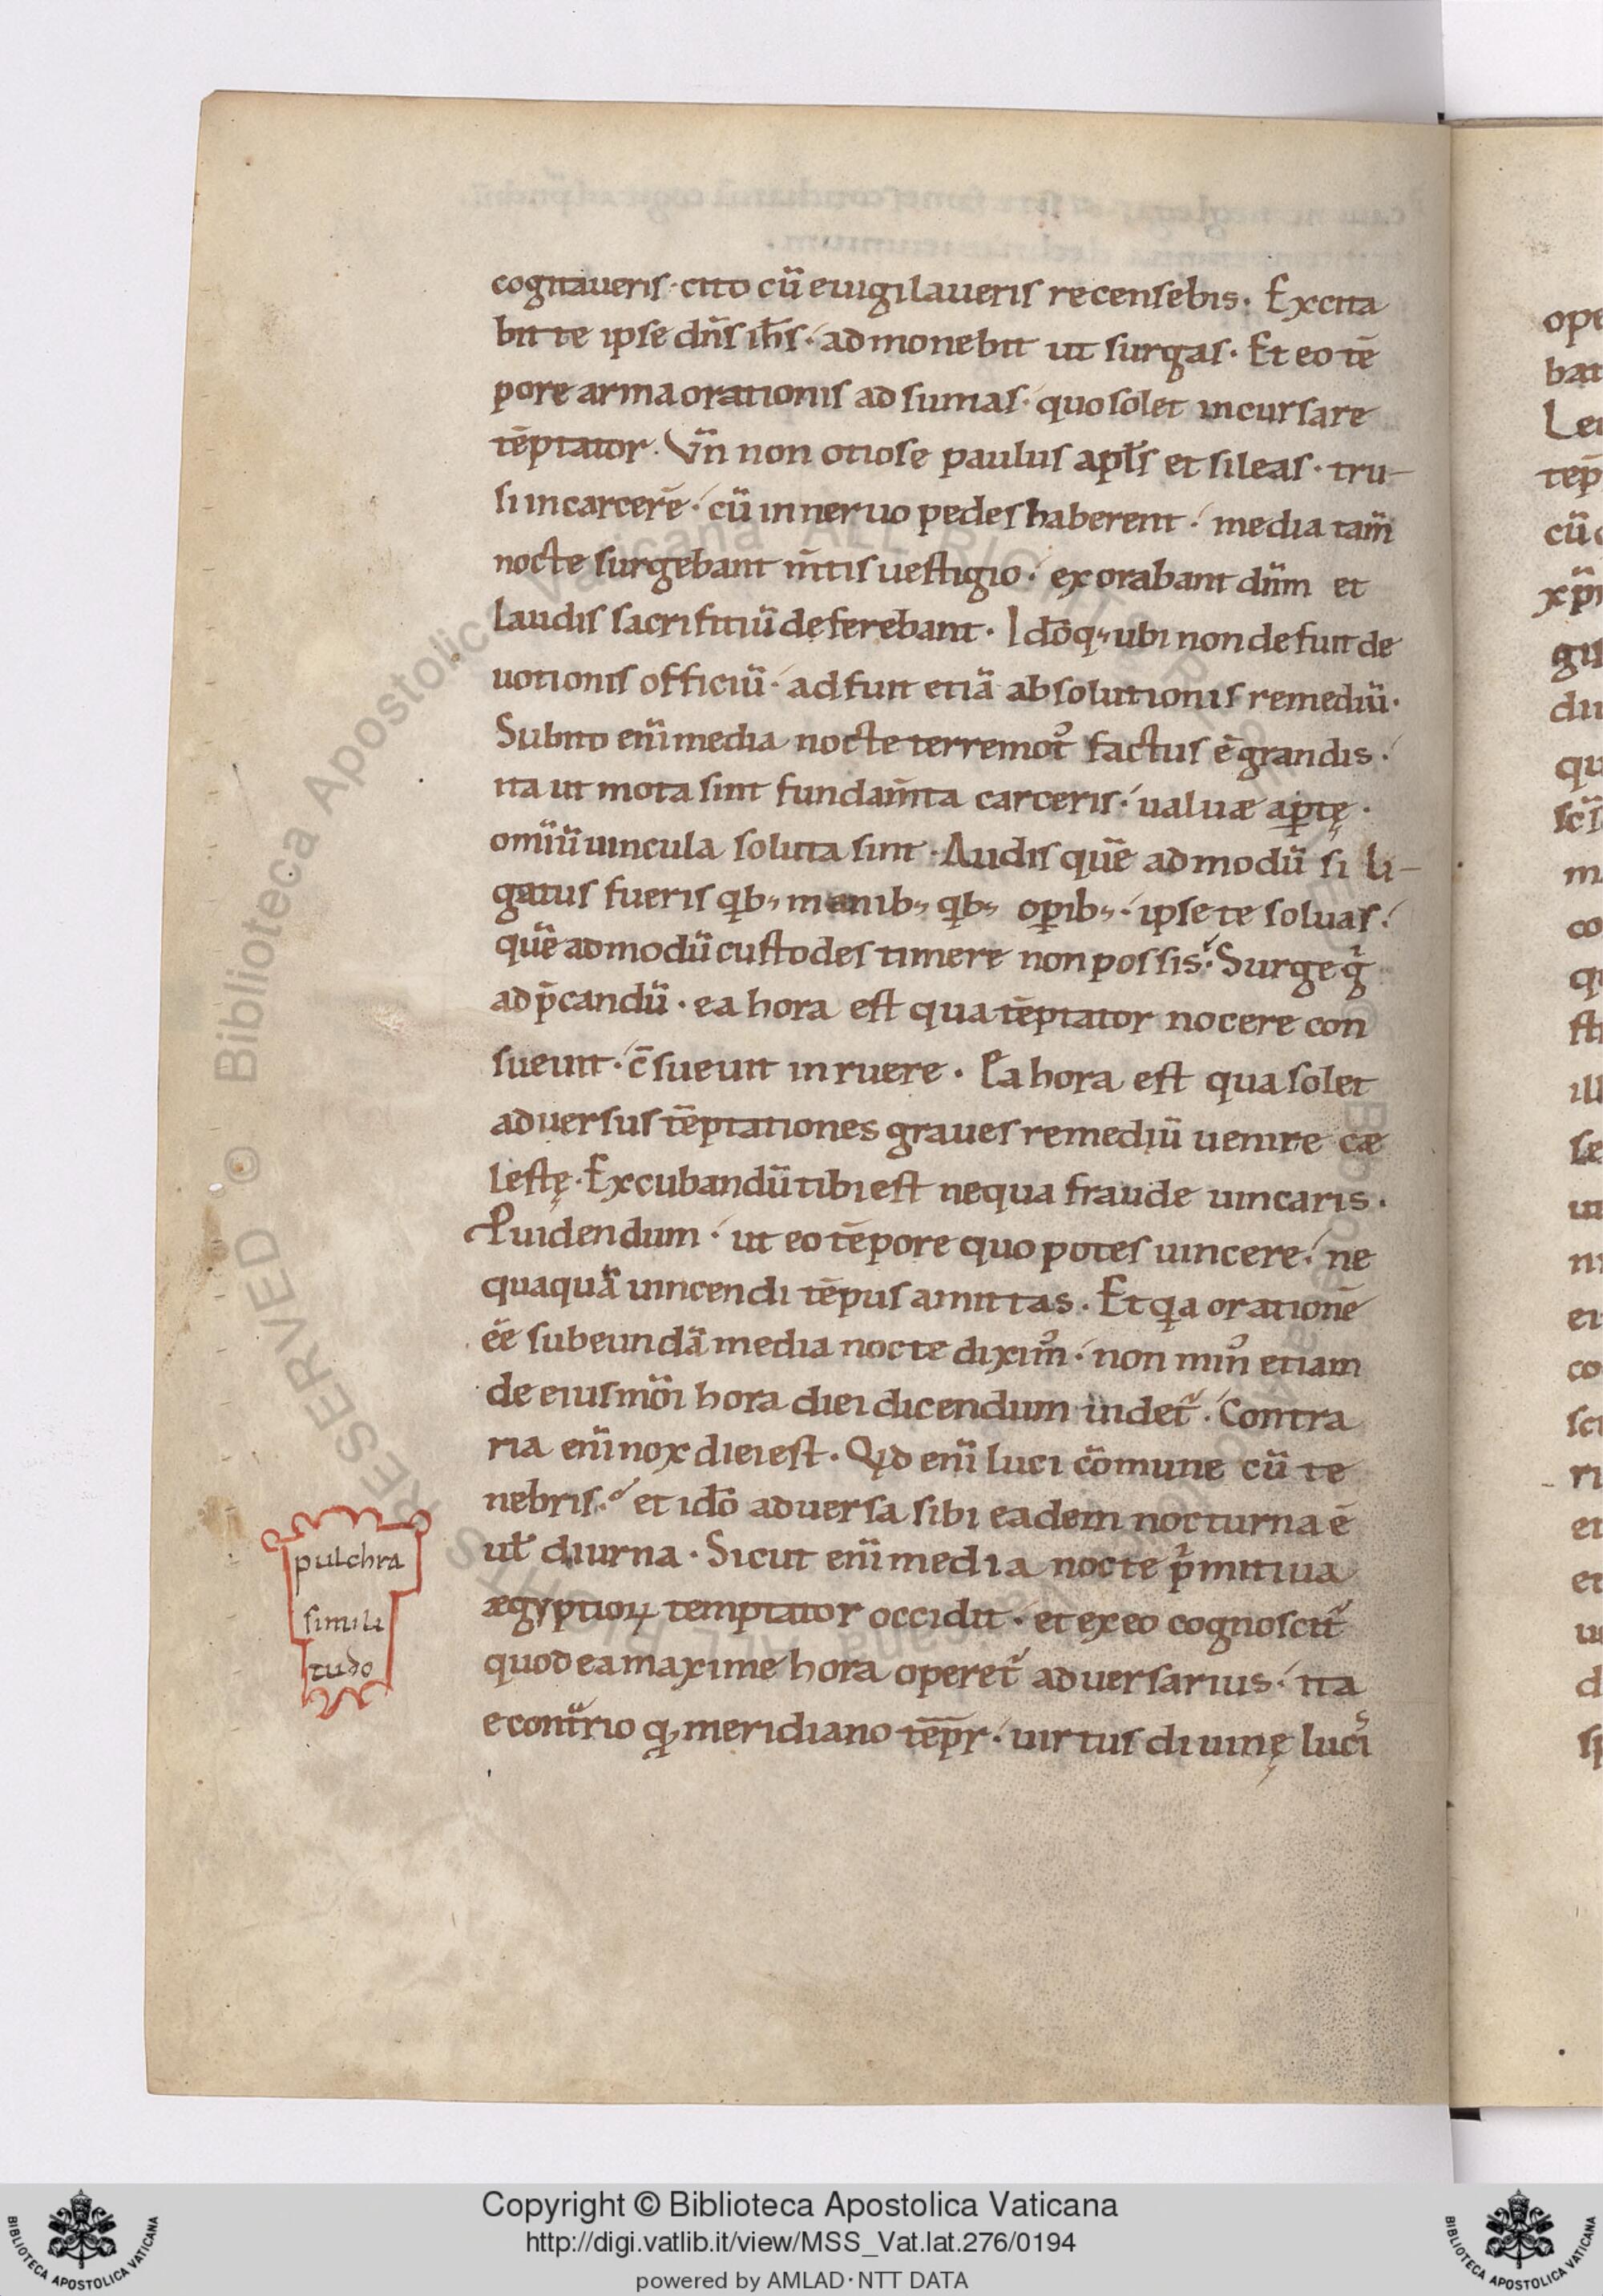 cogitaueris· cito cū euigilaueris recensebis· Excita
bit te ipse dn̄s ih̄s· admonebit ut surgas· Et eo tē
pore arma orationis adsumas· quo solet incursare
tēptator· Vn̄ non otiose paulus apl̄s et sileas· tru-
si in carcerē· cū in neruo pedes haberent· media tam̄
nocte surgebant m̄tis uestigio· exorabant dn̄m et
laudis sacrifitiū deferebant· Idōq; ubi non defuit de
uotionis officiū· adfuit etiā absolutionis remediū·
Subito eni̅ media nocte terremot᾽ factus ē grandis·
ita ut mota sint fundam̄ta carceris· ualuæ aꝑtę·
omiū uincula soluta sint· Audis quē admodū si li-
gatus fueris qib; manib; qib; oꝑib;· ipse te soluas·
quē admodū custodes timere non possis· Surge gͥ
ad p̄candū· ea hora est qua tēptator nocere con
sueuit· c̄sueuit inruere· Ea hora est qua solet
aduersus tēptationes graues remediū uenire cæ
lestę· Excubandū tibi est nequa fraude uincaris·
Ꝓuidendum· ut eo tēpore quo potes uincere· ne
quaquā uincendi tēpus amittas· Et qia orationē
ēe subeundā media nocte dixim᾽· non min᾽ etiam
de eiusmōi hora diei dicendum uidet᷑· Contra
ria eni̅ nox diei est· Qid eni̅ luci cōmune cū te
nebris· et idō aduersa sibi eadem nocturna ē
ul̄ diurna· Sicut eni̅ media nocte pͥmitiua
ægyptioꝝ temptator occidit· et ex eo cognoscit᷑
quod ea maxime hora operet᷑ aduersarius· ita
econtrͣio qꝫ meridiano tēpr̄· uirtus diuinę luci᾽
pulchra
simili
tudo
Copyright © Biblioteca Apostolica Vaticana
http://digi.vatlib.it/view/MSS_Vat.lat.276/0194
powered by AMLAD·NTT DATA
BIBLIOTECA APOSTOLICA VATICANA
BIBLIOTECA APOSTOLICA VATICANA